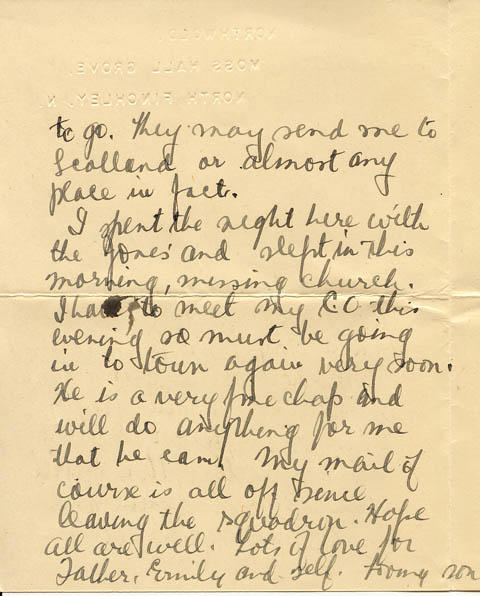 NORTHWOLD,
MOSS HALL GROVE,
NORTH FINCHLEY, N.
to go. They may send me to
Scotland or almost any
place in fact.
I spent the night here with
the Jones' and slept in this
morning, missing church.
I have to meet my CO this
evening so must be going
in to town again very soon.
He is a very fine chap and
will do anything for me
that he can. My mail of
course is all off since
leaving the squadron. Hope
all are well. Lots of love for
Father, Emily and self. son